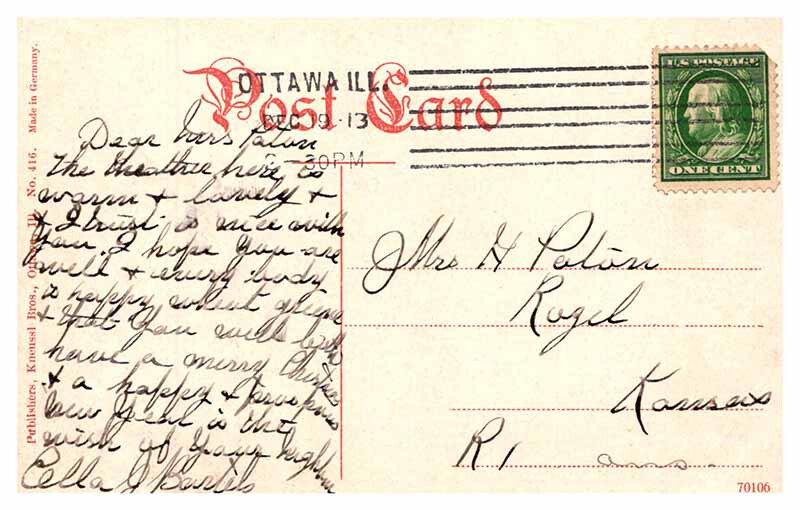 Post Card
OTTAWA ILL.
DEC 19 · 13
30 PM
U.S. POSTAGE
ONE CENT
Dear Mrs Paton
The weather here is
warm + lovely +
+ I trust is nice with
you. I hope you are
well + every body
is happy wheat green
+ that you will both
have a merry
+ a happy +
new year is the
wish of your neighbor
Cella J
Mrs H Paton
Rozel
Kansas
R 1
Publishers, Kneussl Bros., Ottawa, Ill. No. 416. Made in Germany.
70106